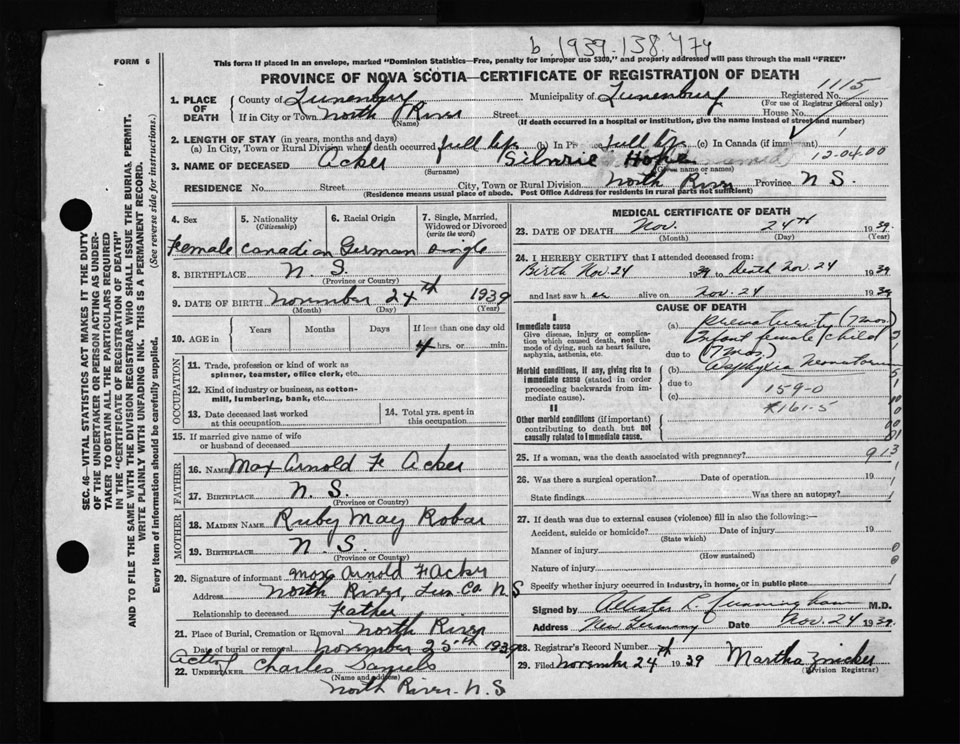 b. 1939-138-474
FORM 6
This form if placed in an envelope, marked "Dominion Statistics—Free, penalty for improper use $300," and properly addressed will pass through the mail "FREE"
PROVINCE OF NOVA SCOTIA—CERTIFICATE OF REGISTRATION OF DEATH
1115
1. PLACE OF DEATH
County of Lunenburg Municipality of Lunenburg Registered No.
(For use of Registrar General only)
If in City or Town North River Street House No.
(Name) (If death occurred in a hospital or institution, give the name instead of street and number)
2. LENGTH OF STAY (in years, months and days)
(a) In City, Town or Rural Division where death occurred full life (b) In Province full life (c) In Canada (if immigrant)
3. NAME OF DECEASED Acker Hope 12-04-00
(Surname) (Given name or names)
RESIDENCE No. Street City, Town or Rural Division North River Province N S.
(Residence means usual place of abode. Post Office Address for residents in rural parts not sufficient)
4. Sex
5. Nationality (Citizenship)
6. Racial Origin
7. Single, Married, Widowed or Divorced (write the word)
Female Canadian German single
8. BIRTHPLACE N. S.
(Province or Country)
9. DATE OF BIRTH November 24th 1939
(Month) (Day) (Year)
10. AGE in
Years Months Days If less than one day old
4 hrs. or min.
OCCUPATION
11. Trade, profession or kind of work as spinner, teamster, office clerk, etc.
12. Kind of industry or business, as cotton-mill, lumbering, bank, etc.
13. Date deceased last worked at this occupation
14. Total yrs. spent in this occupation
15. If married give name of wife or husband of deceased
FATHER
16. NAME Max Arnold F Acker
17. BIRTHPLACE N. S.
(Province or Country)
MOTHER
18. MAIDEN NAME Ruby May Robar
19. BIRTHPLACE N. S.
(Province or Country)
20. Signature of informant Max Arnold F Acker
Address North River, Lun. Co. N S
Relationship to deceased Father
21. Place of Burial, Cremation or Removal North River
Date of burial or removal November 25th 1939
Acting
22. UNDERTAKER Charles Samuels
(Name and address)
North River. N. S
MEDICAL CERTIFICATE OF DEATH
23. DATE OF DEATH Nov. 24th 1939
(Month) (Day) (Year)
24. I HEREBY CERTIFY that I attended deceased from:
Birth Nov. 24 1939 to Death Nov. 24 1939
and last saw her alive on Nov. 24 1939
CAUSE OF DEATH
I
Immediate cause
Give disease, injury or complication which caused death, not the mode of dying, such as heart failure, asphyxia, asthenia, etc.
(a) Prematurity (7 mos.)
Infant female child
due to (7 mos.)
Morbid conditions, if any, giving rise to immediate cause (stated in order proceeding backwards from immediate cause).
(b) Asphyxia Neonatorum
due to 159-0
(c) 161-5
II
Other morbid conditions (if important) contributing to death but not causally related to immediate cause.
25. If a woman, was the death associated with pregnancy? 
26. Was there a surgical operation? Date of operation 19
State findings Was there an autopsy?
27. If death was due to external causes (violence) fill in also the following:—
Accident, suicide or homicide? Date of injury 19
(State which)
Manner of injury
(How sustained)
Nature of injury
Specify whether injury occurred in industry, in home, or in public place
Signed by Cunningham M.D.
Address New Germany Date Nov. 24 1939.
28. Registrar's Record Number
29. Filed November 24th 1939 Martha Zwicker
(Division Registrar)
SEC. 46—VITAL STATISTICS ACT MAKES IT THE DUTY OF THE UNDERTAKER OR PERSON ACTING AS UNDERTAKER TO OBTAIN ALL THE PARTICULARS REQUIRED IN THE "CERTIFICATE OF REGISTRATION OF DEATH" AND TO FILE THE SAME WITH THE DIVISION REGISTRAR WHO SHALL ISSUE THE BURIAL PERMIT.
WRITE PLAINLY WITH UNFADING INK. THIS IS A PERMANENT RECORD.
Every item of information should be carefully supplied. (See reverse side for instructions.)